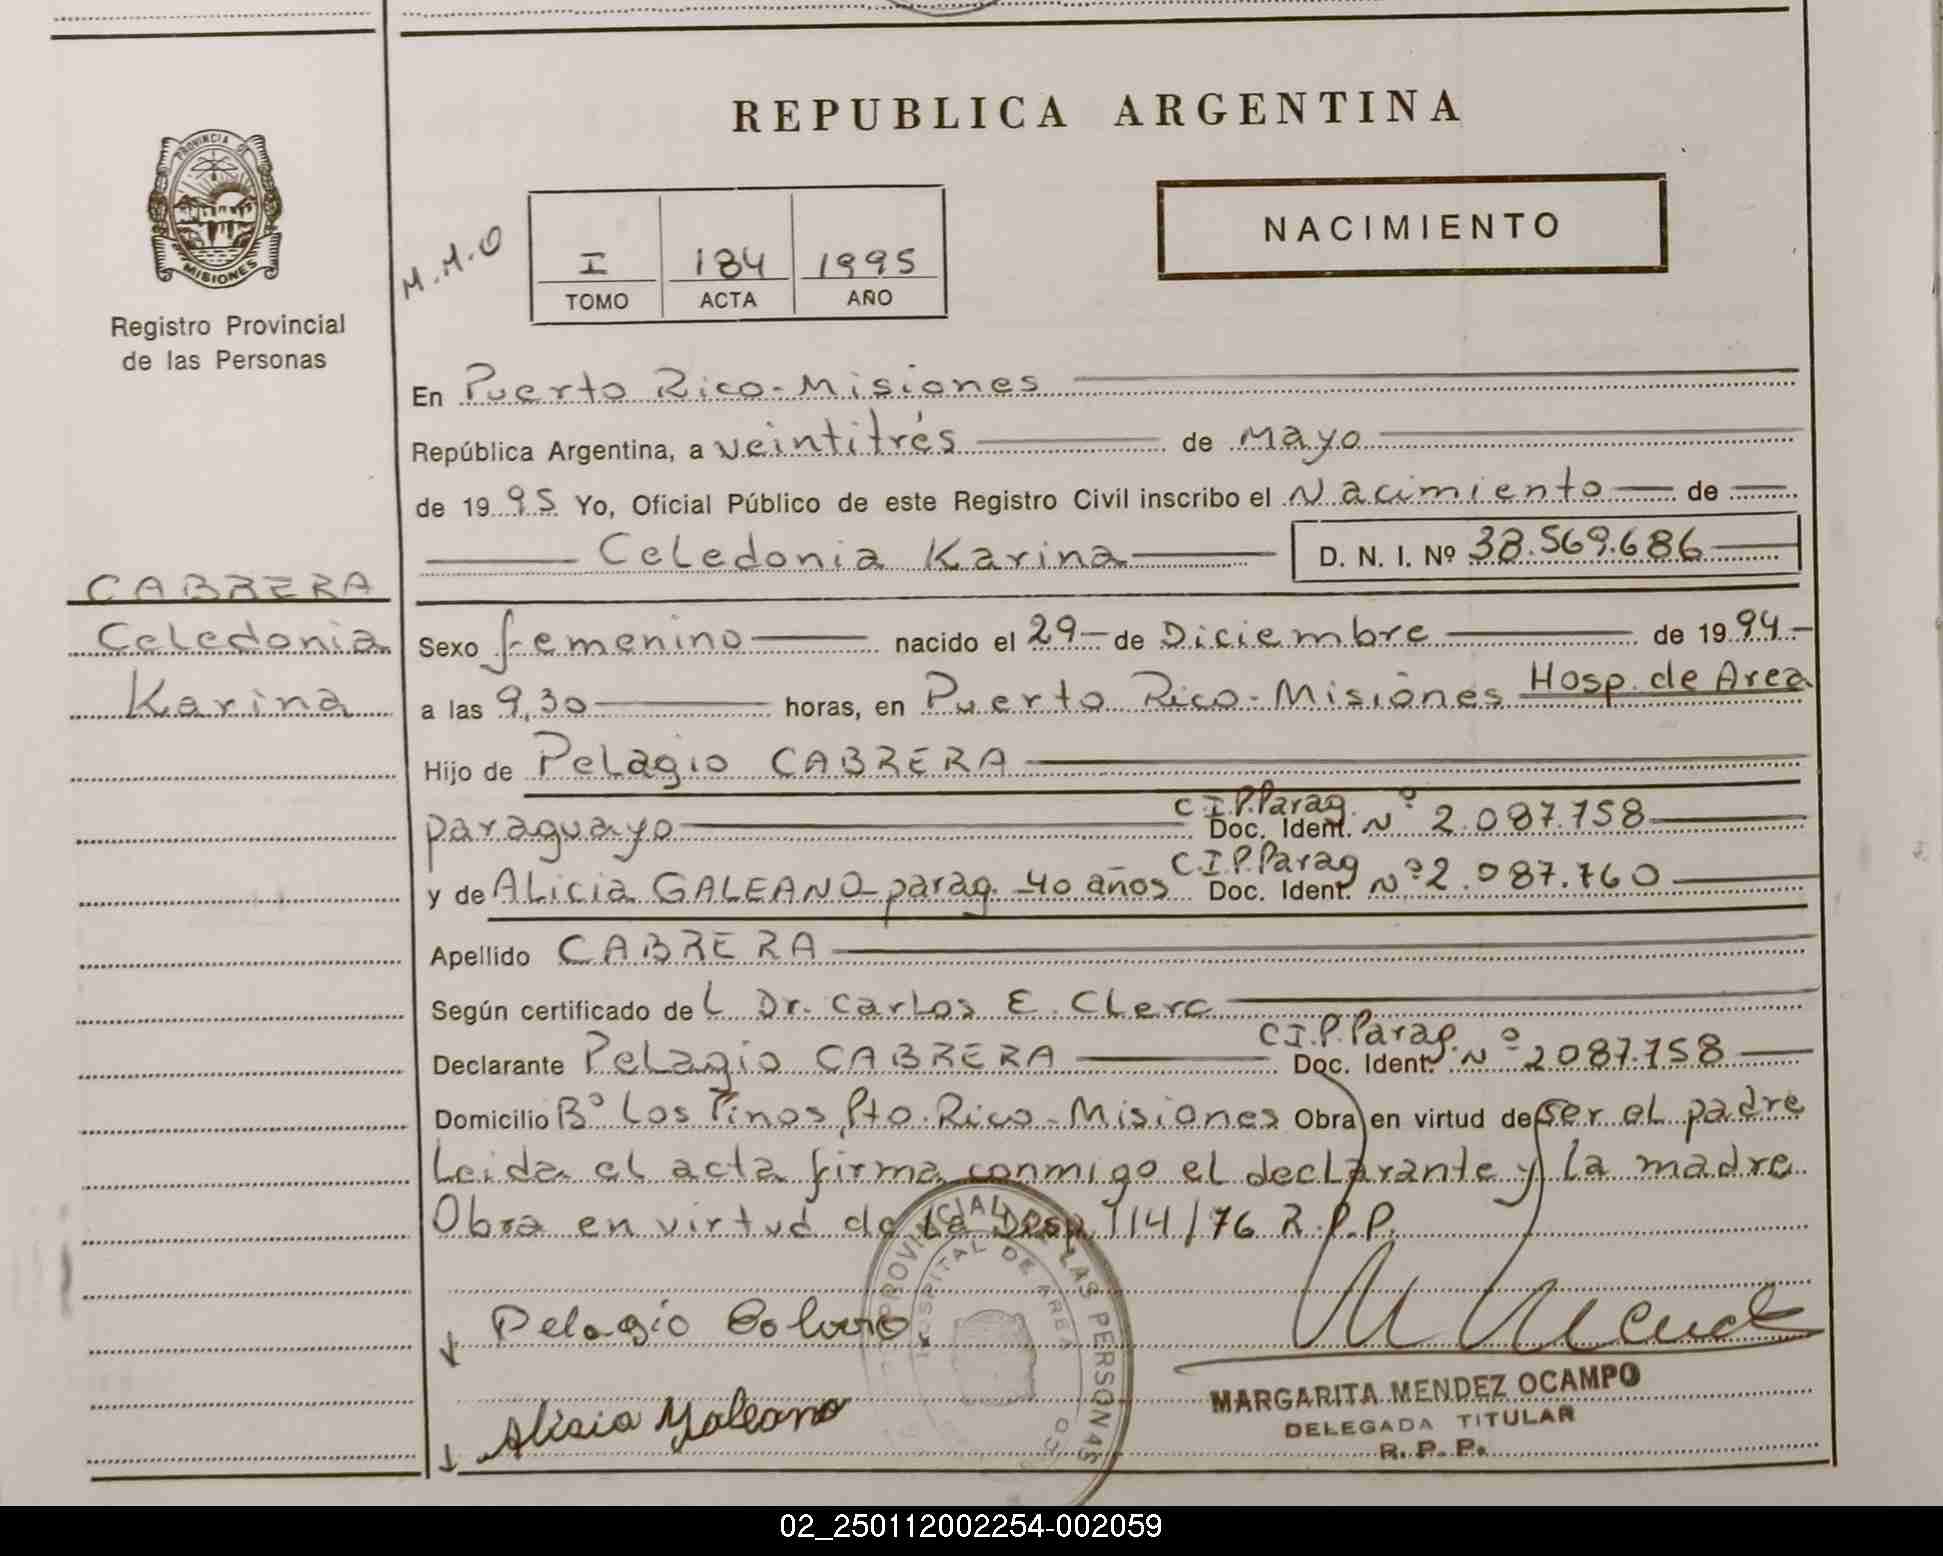 REPUBLICA ARGENTINA
PROVINCIA DE
MISIONES
Registro Provincial
de las Personas
M.M.O
I 184 1995
TOMO ACTA AÑO
NACIMIENTO
En Puerto Rico-Misiones
República Argentina, a veintitrés de Mayo
de 1995 Yo, Oficial Público de este Registro Civil inscribo el Nacimiento de
Celedonia Karina D. N. I. Nº 38.569.686
CABRERA
Celedonia
Karina
Sexo femenino nacido el 29 de Diciembre de 1994
a las 9,30 horas, en Puerto Rico-Misiones Hosp. de Area
Hijo de Pelagio CABRERA
paraguayo C.I.P.Parag. Doc. Ident. Nº 2.087.758
y de Alicia GALEANO parag. 40 años C.I.P.Parag Doc. Ident. Nº 2.087.760
Apellido CABRERA
Según certificado del Dr. Carlos E. Clerc
Declarante Pelagio CABRERA C.I.P.Parag. Doc. Ident. Nº 2087.758
Domicilio Bº Los Pinos, Pto. Rico-Misiones Obra en virtud de ser el padre
Leida el acta firma conmigo el declarante y la madre
Obra en virtud de la Disp. 114/76 R.P.P.
PROVINCIAL DE LAS PERSONAS
HOSPITAL DE AREA
Pelagio Cabrera
Alicia Galeano
M Mendez
MARGARITA MENDEZ OCAMPO
DELEGADA TITULAR
R. P. P.
02_250112002254-002059